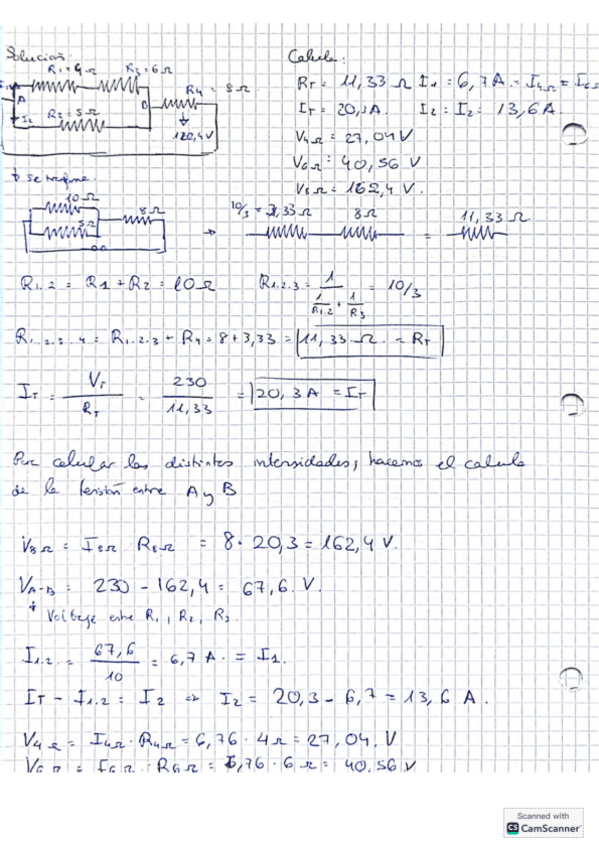 Solución:
R1 = 4Ω R3 = 6Ω
R4 = 8Ω
A
B
I2 R2 = 5Ω
Calcula:
RT = 11,33 Ω I1 = 6,7 A = I4Ω = I6Ω
IT = 20,3A. I2 = I2 = 13,6 A.
V4Ω = 27,04 V
V6Ω = 40,56 V
V8Ω = 162,4 V.
10Ω
5Ω
8Ω
10/3 = 3,33Ω 8Ω = 11,33 Ω
R1.2 = R1 + R2 = 10Ω R1.2.3 = 1 / (1/R1.2 + 1/R3) = 10/3
R1.2.3.4 = R1.2.3 + R4 = 8 + 3,33 = 11,33 Ω = RT
IT = VT / RT = 230 / 11,33 = 20,3 A = IT
Para calcular las distintas intensidades, hacemos el calculo
de la tensión entre A y B
V8Ω = I8Ω R8Ω = 8 · 20,3 = 162,4 V.
VA-B = 230 - 162,4 = 67,6. V.
Voltaje entre R1, R2, R3.
I1.2. = 67,6 / 10 = 6,7 A. = I1.
IT - I1.2 = I2 ⇒ I2 = 20,3 - 6,7 = 13,6 A.
V4Ω = I4Ω · R4Ω = 6,76 · 4Ω = 27,04. V
V6Ω = I6Ω · R6Ω = 6,76 · 6Ω = 40,56 V
Scanned with
CS CamScanner